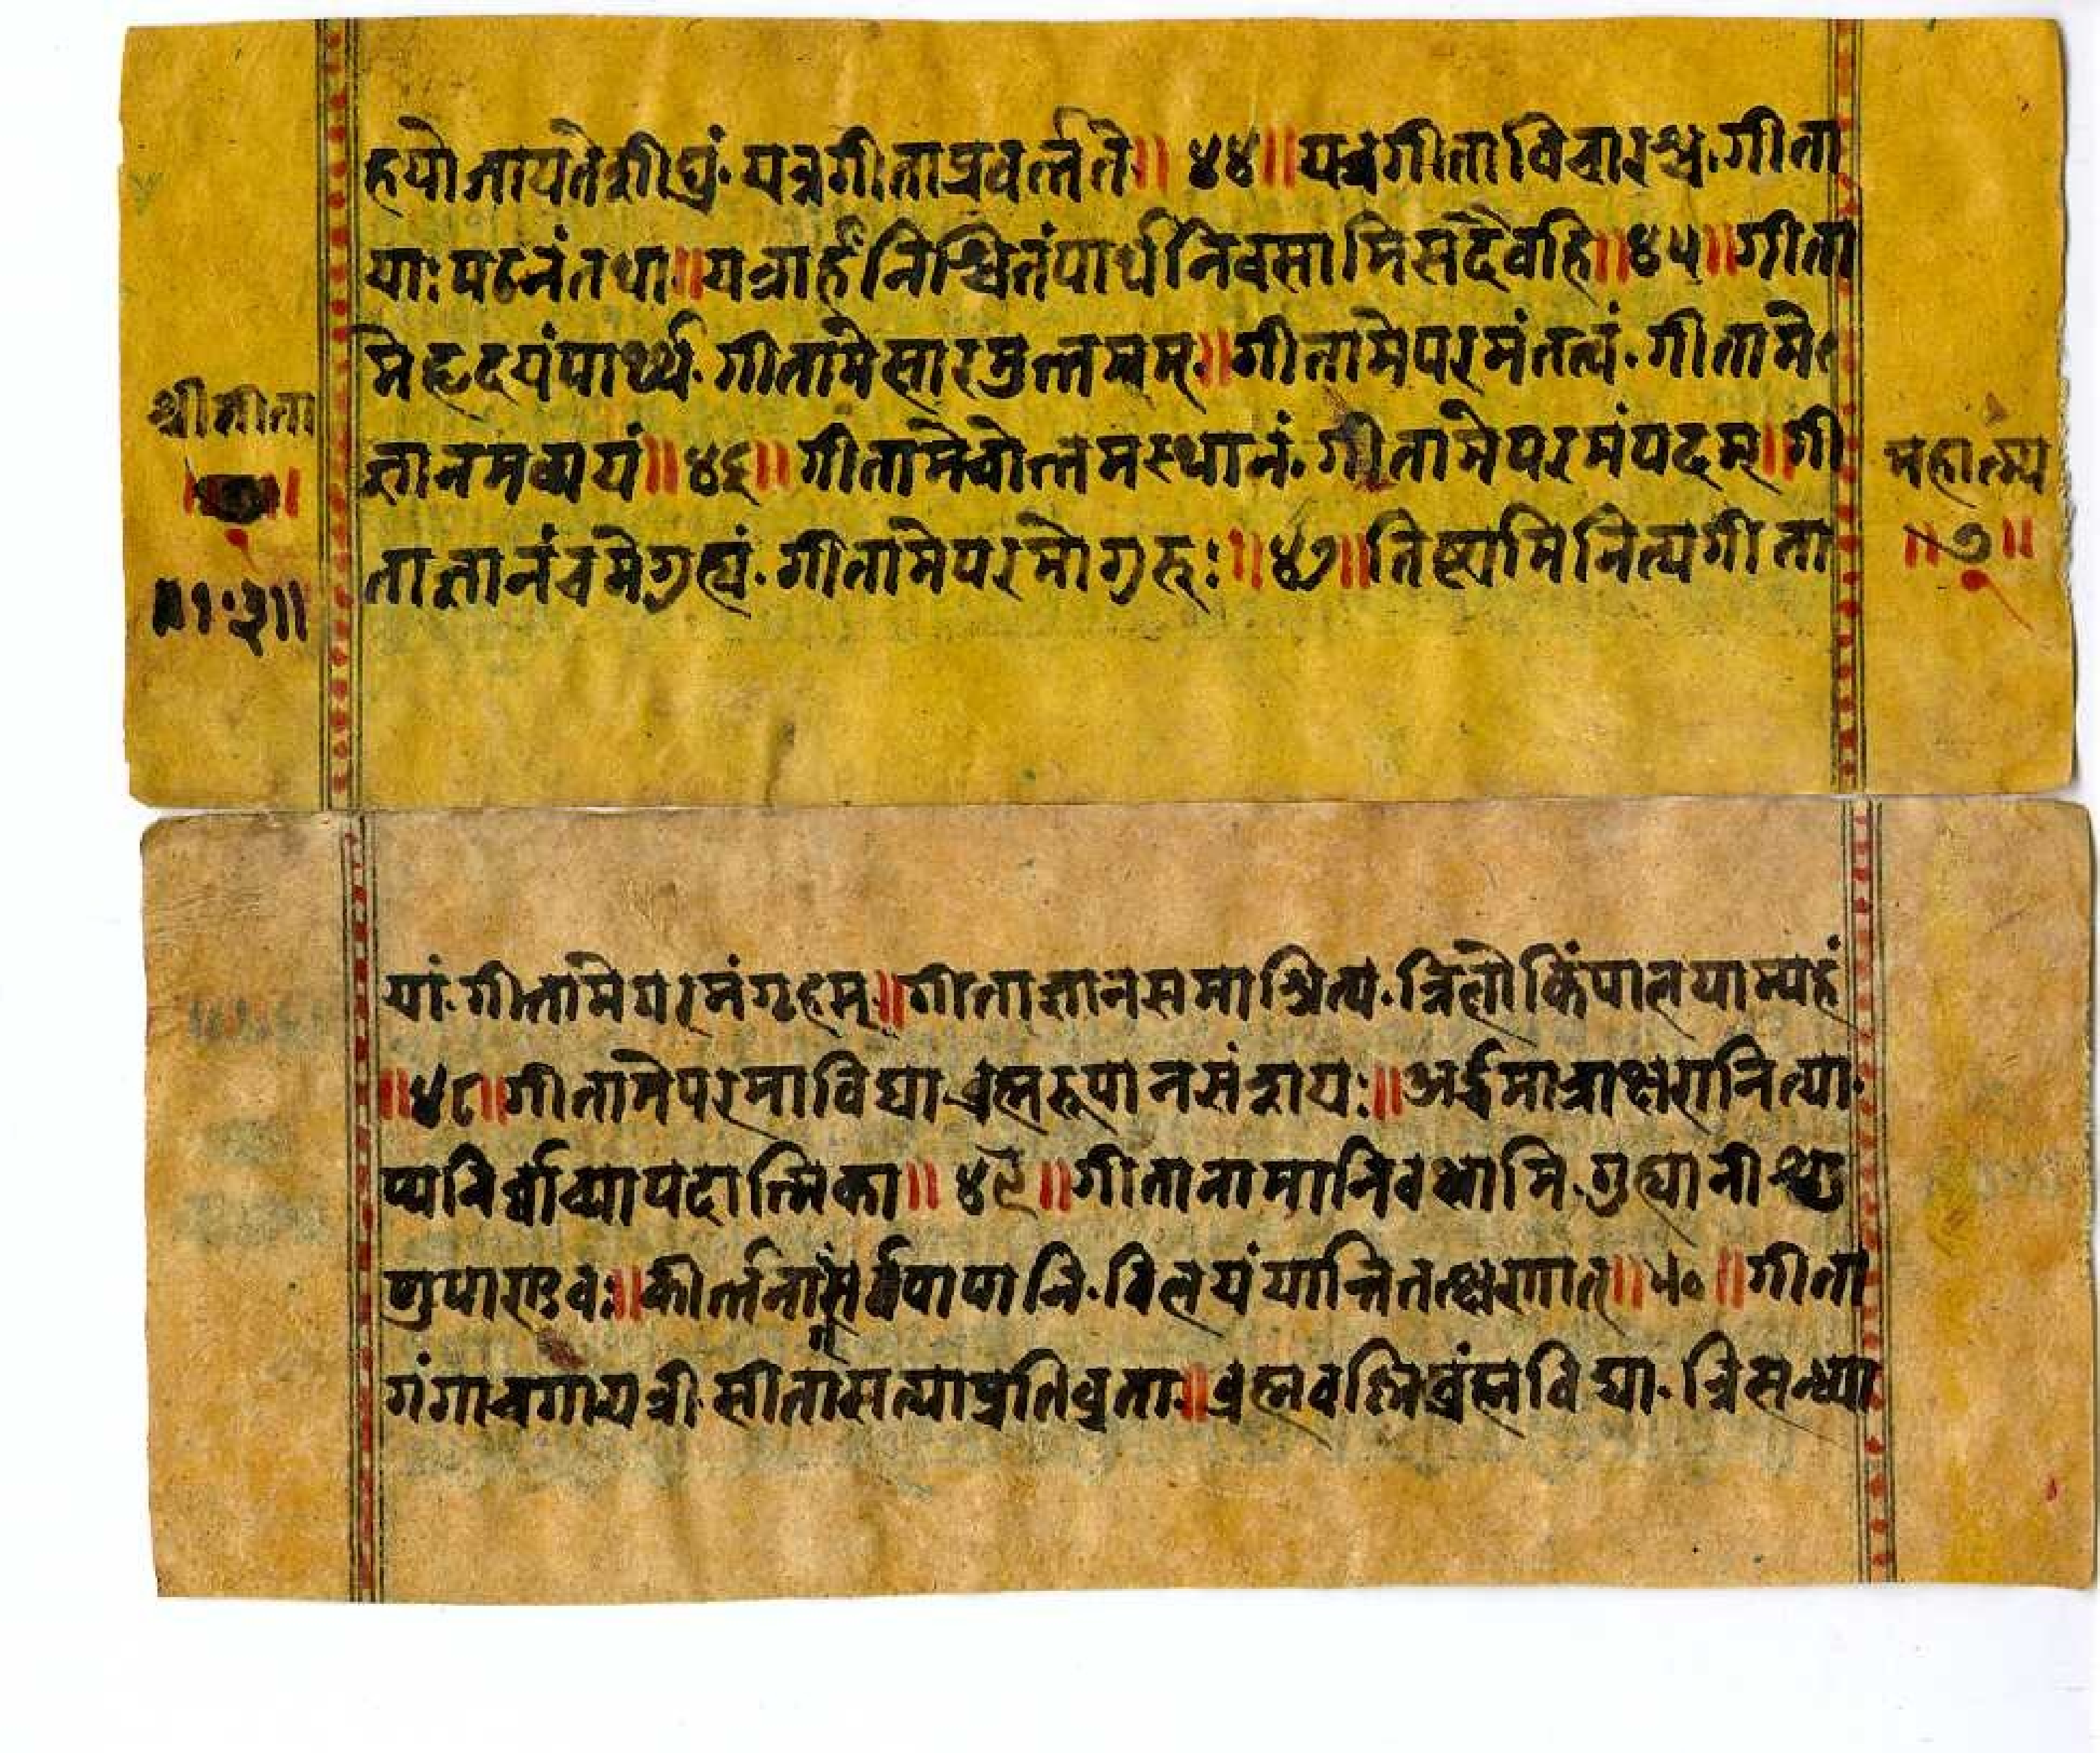 हयो जायते शीघ्रं. यत्र गीता प्रवर्त्तते॥ ४४॥ यत्र गीता विचारश्च. गीता
याः पठनं तथा॥ यत्राहं निश्चितं पार्थ निवसामि सदैव हि॥ ४५॥ गीता
मे हृदयं पार्थ्थ. गीता मे सारमुत्तमम्.॥ गीता मे परमं तत्वं. गीता मे
श्री गीता
ज्ञानमव्ययं॥ ४६॥ गीता मे चोत्तमस्थानं. गीता मे परमं पदम्॥ गी
महात्म्य
ता ज्ञानं च मे गुह्यं. गीता मे परमो गुरूः॥ ४७॥ तिष्टामि नित्य गीता
॥७॥
॥१३॥
यां. गीता मे परमं गृहम्.॥ गीता ज्ञान समाश्रित्य. त्रिलोकिं पालयाम्यहं
॥४८॥ गीता मे परमा विद्या. ब्रह्मरूपा न संशयः॥ अर्द्धमात्राक्षरा नित्या.
प्यनिर्व्वाच्या पदात्मिका॥ ४९॥ गीता नामानि वक्षामि. गुह्यानी शृ
णु पाण्डवः॥ कीर्त्तनात्सर्व्वपापानि. विलयं यान्ति तत्क्षणात्॥ ५०॥ गीता
गंगा च गायत्री. सीता सत्या प्रतिव्रता॥ ब्रह्मवल्लि र्ब्रंह्मविद्या. त्रिसन्ध्या